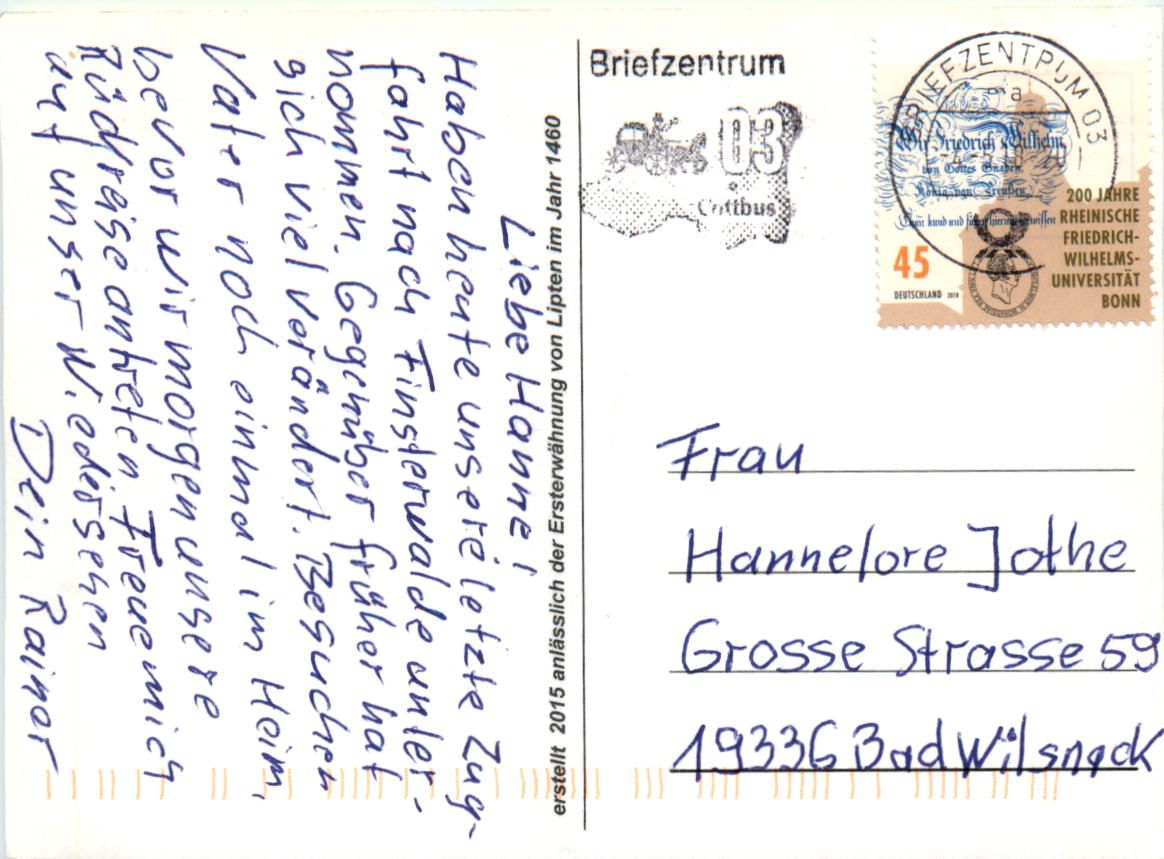 Liebe Hanne!
Haben heute unsere letzte Zug-
fahrt nach Finsterwalde unter-
nommen. Gegenüber früher hat
sich viel verändert. Besuchen
Vater noch einmal im Heim,
bevor wir morgen unsere
Rückreise antreten. Freue mich
auf unser Wiedersehen
Dein Rainer
erstellt 2015 anlässlich der Ersterwähnung von Lipten im Jahr 1460
Briefzentrum
03
Cottbus
BRIEFZENTRUM 03
Wir Friedrich Wilhelm,
von Gottes Gnaden
König von Preußen,
Thun kund und fügen hiermit zu wissen
200 JAHRE
RHEINISCHE
FRIEDRICH-
WILHELMS-
UNIVERSITÄT
BONN
45
DEUTSCHLAND 2018
Frau
Hannelore Jothe
Grosse Strasse 59
19336 Bad Wilsnack